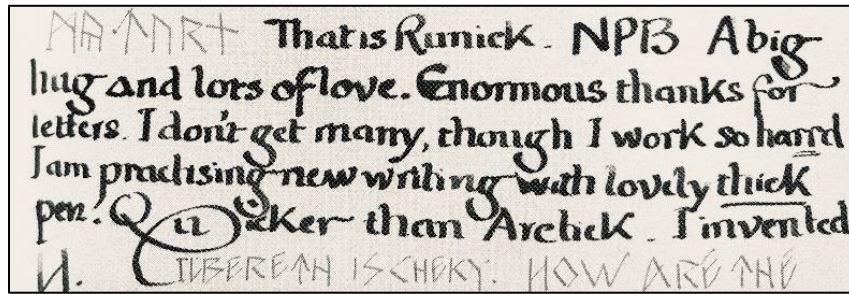 That is Runick. NPB A big
hug and lots of love. Enormous thanks for
letters. I don't get many, though I work so harrd
I am practising new writing with lovely thick
pen. Quicker than Arctick. I invented
it. ILBERETH IS CHEKY. HOW ARE THE